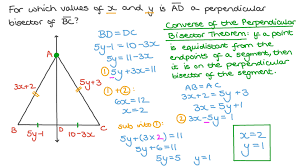 For which values of x and y is AD a perpendicular
bisector of BC?
A
3x+2
5y+3
B
5y-1
D
10-3x
C
BD = DC
5y-1 = 10-3x
5y = 11-3x
① 5y+3x = 11
①+②:
6x = 12
x = 2
sub into ①:
5y+(3×2) = 11
5y+6 = 11
5y = 5
y = 1
Converse of the Perpendicular
Bisector Theorem: if a point
is equidistant from the
endpoints of a segment, then
it is on the perpendicular
bisector of the segment.
AB = AC
3x+2 = 5y+3
3x = 5y+1
② 3x-5y = 1
x = 2
y = 1